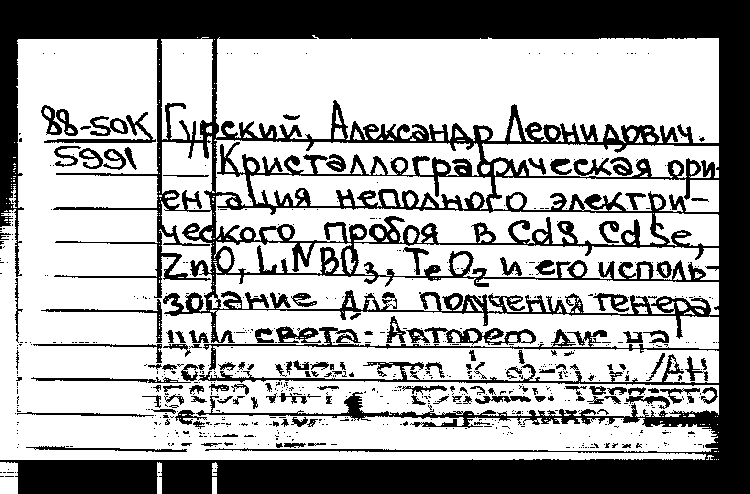 88-50К Гурский, Александр Леонидович.
5991 Кристаллографическая ори-
ентация неполного электри-
ческого пробоя в CdS, CdSe,
ZnO, LiNBO₃, TeO₂ и его исполь-
зование для получения генера-
ции света: Автореф. дис. на
соиск. учен. степ. к. ф.-м. н. /АН
БССР, Ин-т твердого